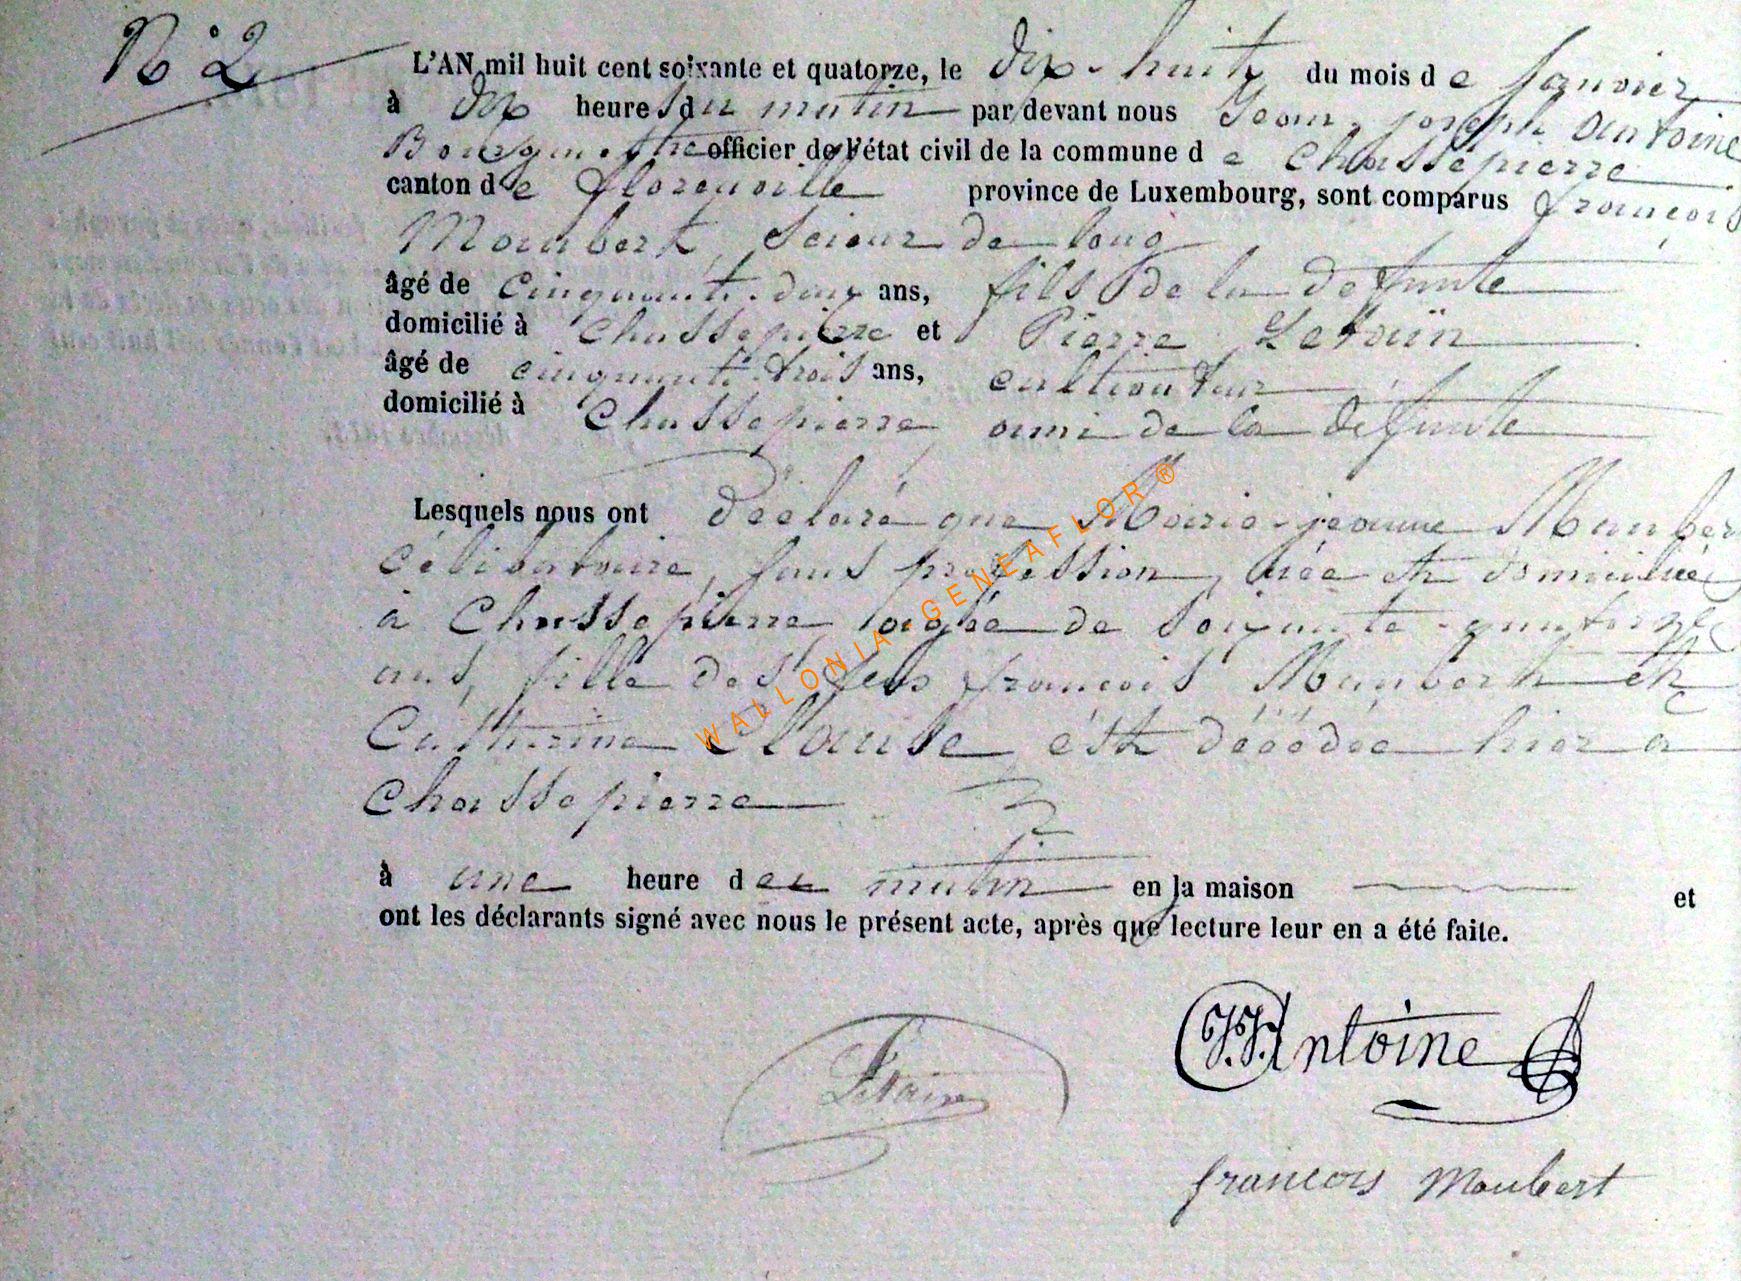 N° 2
L'AN mil huit cent soixante et quatorze, le dix-huit du mois de Janvier
à dix heures du matin par devant nous Jean-joseph Antoine
Bourgmestre officier de l'état civil de la commune de Chassepierre
canton de florenville province de Luxembourg, sont comparus françois
Maubert, scieur de long
âgé de cinquante-deux ans, fils de la défunte
domicilié à Chassepierre et Pierre Letoiin
âgé de cinquante-trois ans, cultivateur
domicilié à Chassepierre, ami de la défunte
Lesquels nous ont déclaré que Marie-jeanne Mauber
célibataire, sans profession, née et domiciliée
à Chassepierre, agée de soixante-quatorze
ans, fille des feus françois Maubert et
Catherine Clause, est décédée hier à
Chassepierre
à une heure du matin en la maison et
ont les déclarants signé avec nous le présent acte, après que lecture leur en a été faite.
J.J. Antoine
Letoine
françois Maubert
WALLONIA-GENEAFLOR®